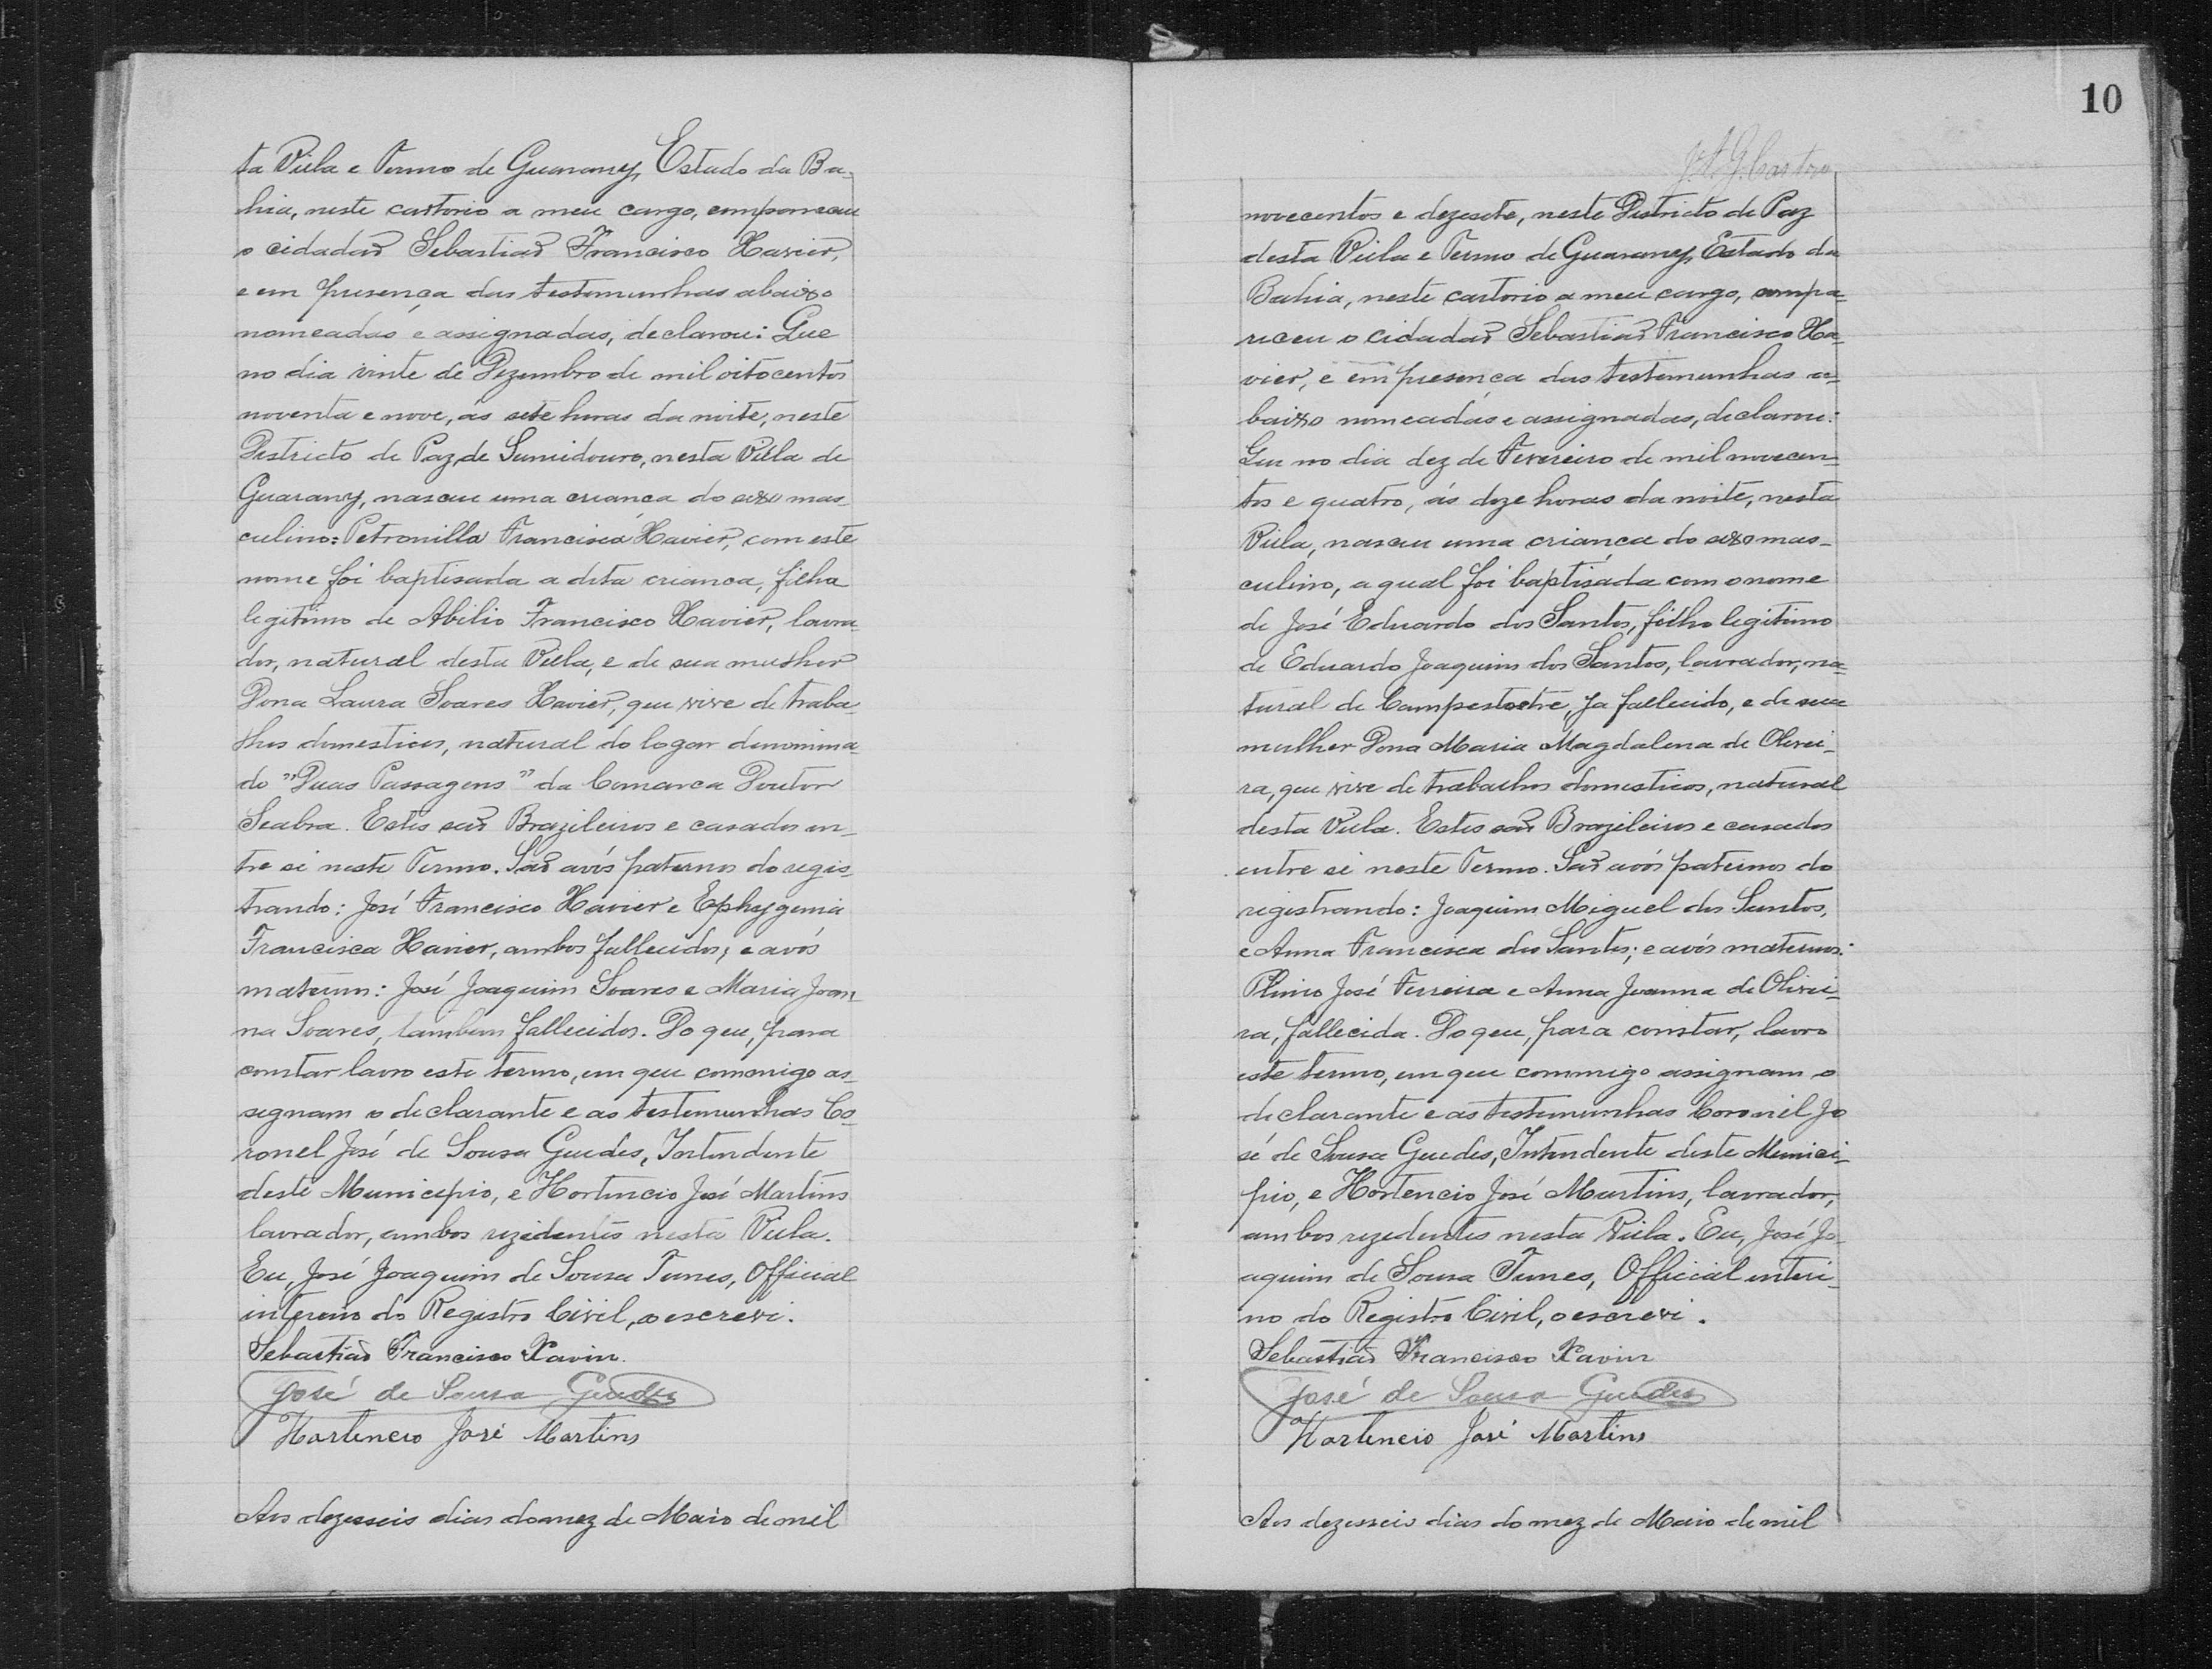 ta Villa e Termo de Guarany, Estado da Ba-
hia, neste cartorio a meu cargo, compareceu
o cidadão Sebastião Francisco Xavier,
e em presença das testemunhas abaixo
nomeadas e assignadas, declarou: Que
no dia vinte de Dezembro de mil oitocentos
noventa e nove, ás sete horas da noite, neste
Districto de Paz de Sumidouro, nesta Villa de
Guarany, nasceu uma criança do sexo mas-
culino: Petronilla Francisca Xavier, com este
nome foi baptisada a dita criança, filha
legitimo de Abilio Francisco Xavier, lavra-
dor, natural desta Villa, e de sua mulher
Dona Laura Soares Xavier, que vive de traba-
lhos domesticos, natural do logar denomina-
do "Duas Passagens" da Comarca Doutor
Seabra. Estes são Brazileiros e casados en-
tre si neste Termo. São avós paternos do regis-
trando: José Francisco Xavier e Ephygenia
Francisca Xavier, ambos fallecidos; e avós
maternos: José Joaquim Soares e Maria Joan-
na Soares, tambem fallecidos. Do que, para
constar lavro este termo, em que commigo as-
signam o declarante e as testemunhas Co-
ronel José de Sousa Guedes, Intendente
deste Municipio, e Hortencio José Martins
lavrador, ambos rezidentes nesta Villa.
Eu, José Joaquim de Sousa Tunes, Official
interino do Registro Civil, o escrevi.
Sebastião Francisco Xavier
José de Sousa Guedes
Hortencio José Martins
Aos dezesseis dias do mez de Maio de mil
10
novecentos e dezesete, neste Districto de Paz
desta Villa e Termo de Guarany, Estado da
Bahia, neste cartorio a meu cargo, compa-
receu o cidadão Sebastião Francisco Xa-
vier, e em presença das testemunhas a-
baixo nomeadas e assignadas, declarou:
Que no dia dez de Fevereiro de mil novecen-
tos e quatro, ás doze horas da noite, nesta
Villa, nasceu uma criança do sexo mas-
culino, a qual foi baptisada com o nome
de José Eduardo dos Santos, filho legitimo
de Eduardo Joaquim dos Santos, lavrador, na-
tural de Campestre, ja fallecido, e de sua
mulher Dona Maria Magdalena de Olivei-
ra, que vive de trabalhos domesticos, natural
desta Villa. Estes são Brazileiros e casados
entre si neste Termo. São avós paternos do
registrando: Joaquim Miguel dos Santos,
e Anna Francisca dos Santos; e avós maternos:
Plinio José Ferreira e Anna Joanna de Olivei-
ra, fallecida. Do que, para constar, lavro
este termo, em que commigo assignam o
declarante e as testemunhas Coronel Jo
sé de Sousa Guedes, Intendente deste Munici-
pio, e Hortencio José Martins, lavrador,
ambos rezidentes nesta Villa. Eu, José Jo-
aquim de Sousa Tunes, Official interi-
no do Registro Civil, o escrevi.
Sebastião Francisco Xavier
José de Sousa Guedes
Hortencio José Martins
Aos dezesseis dias do mez de Maio de mil